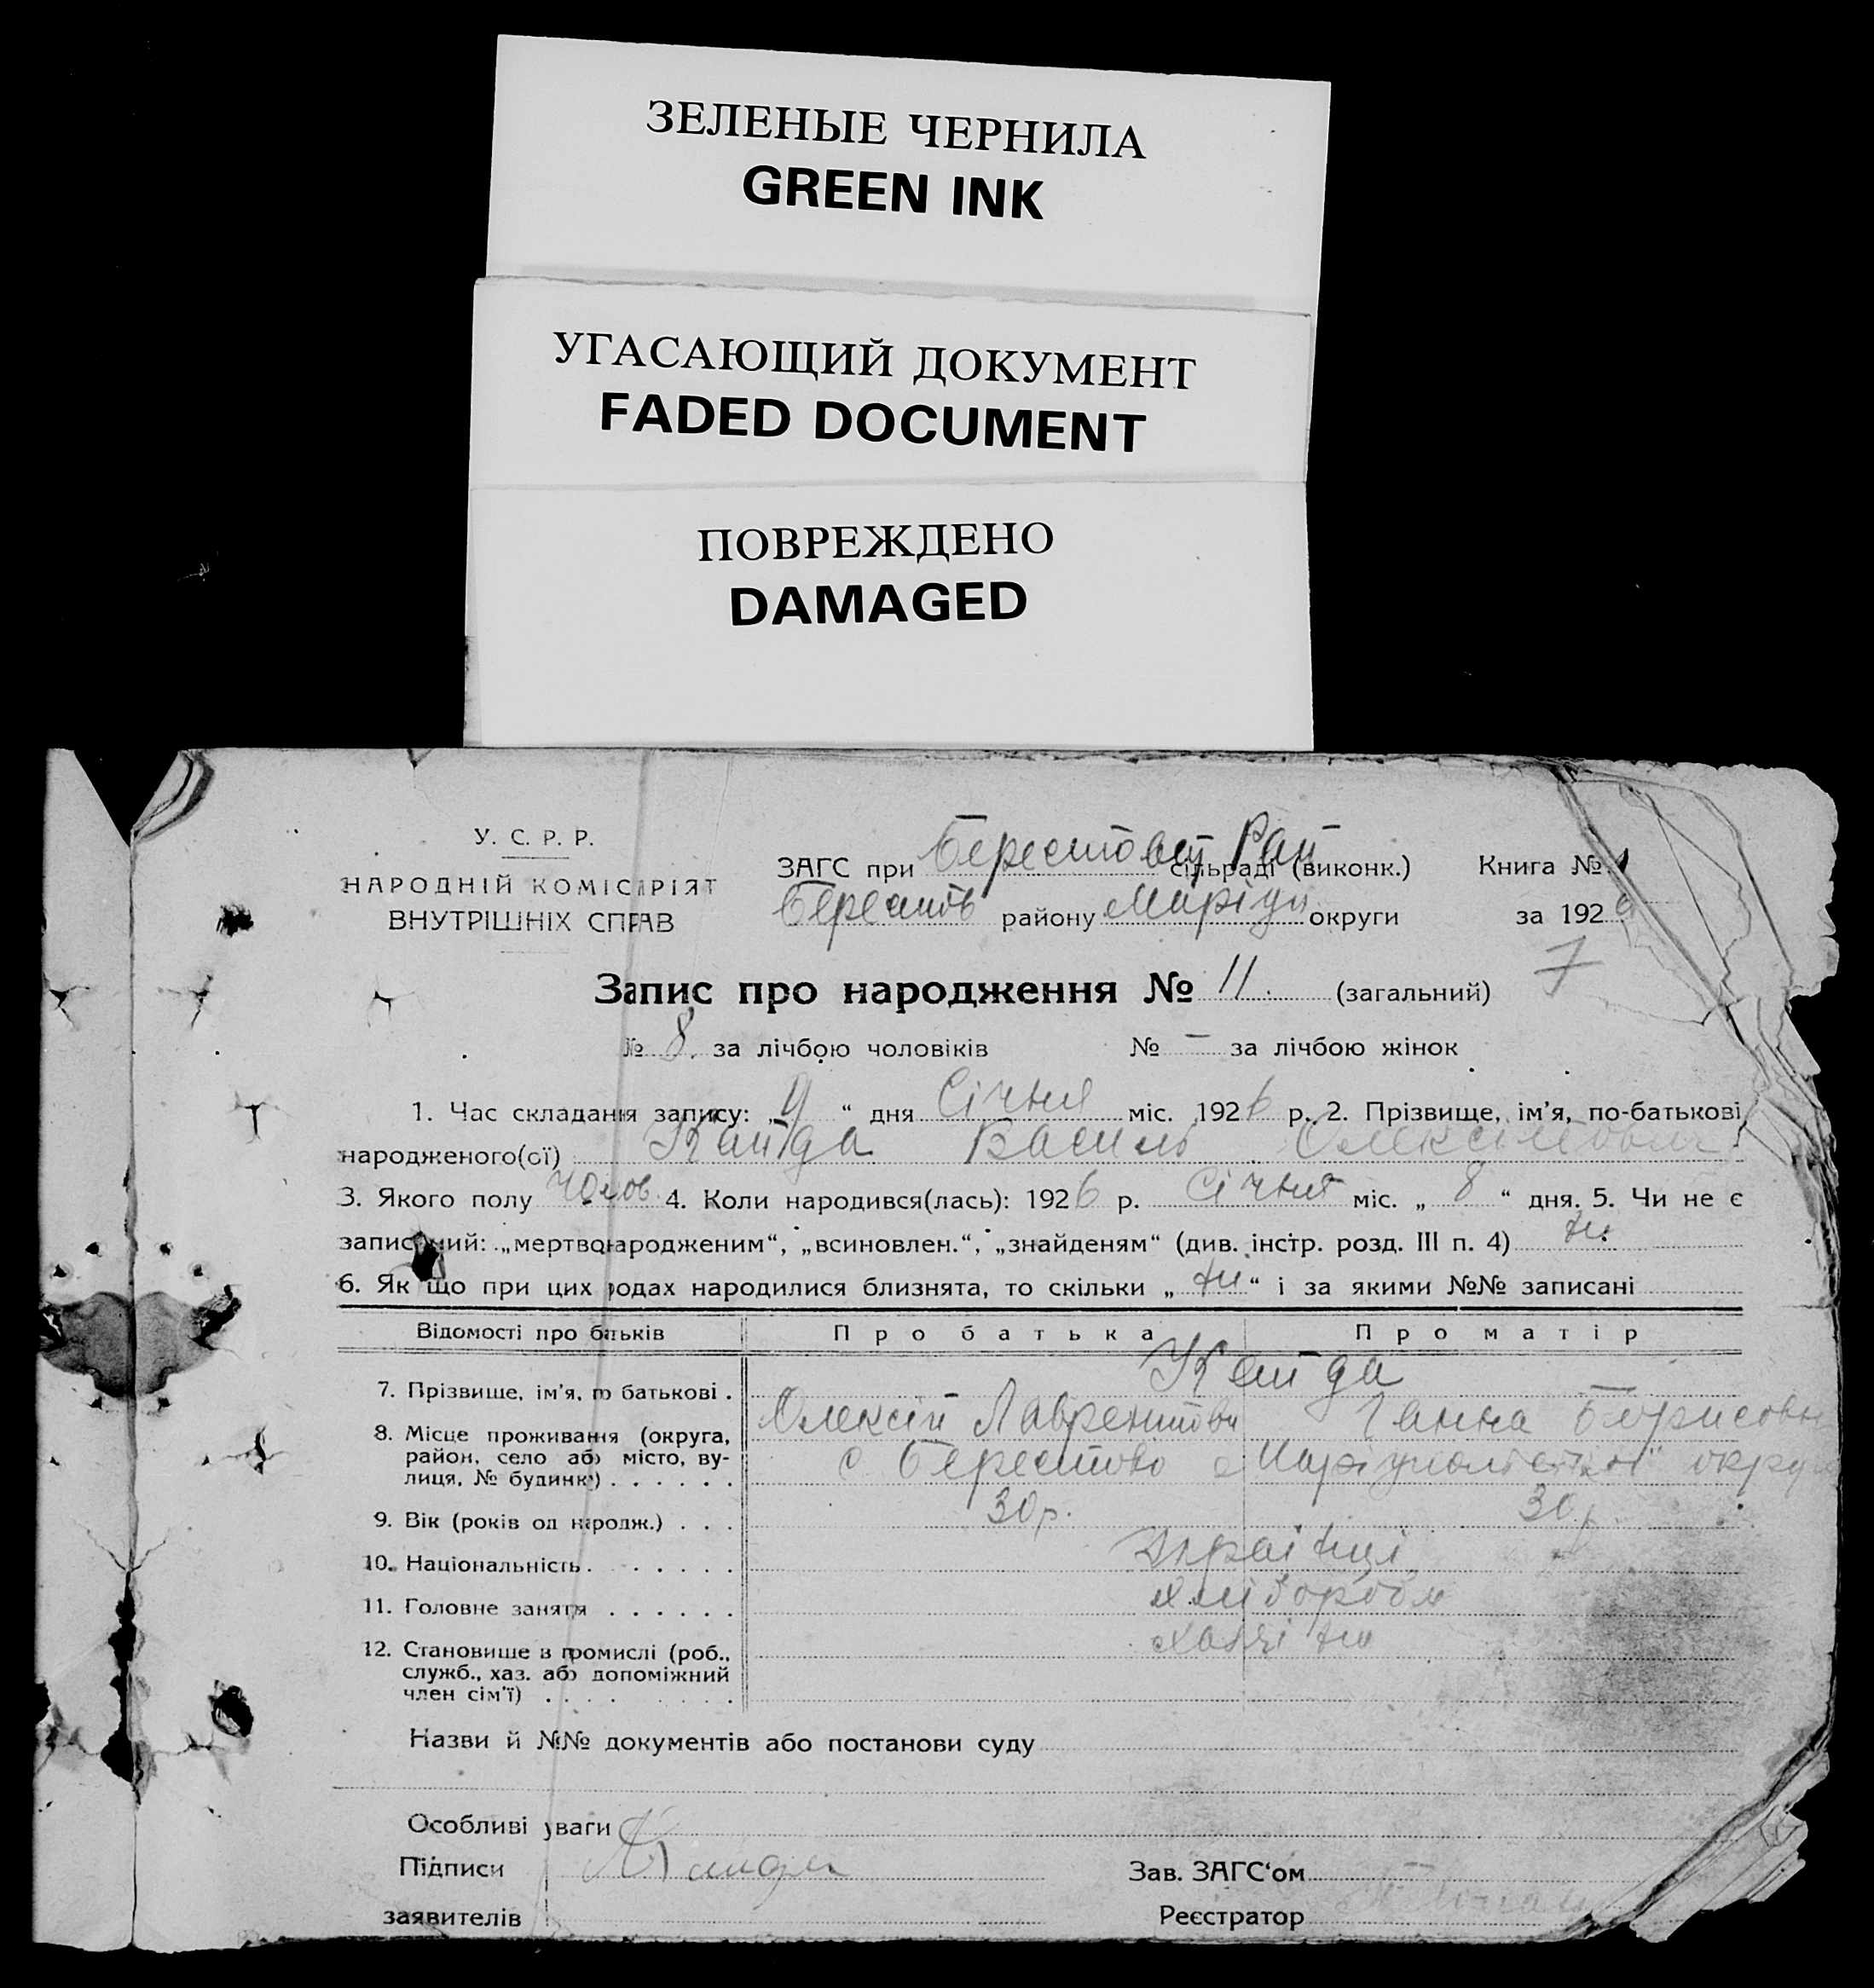 ЗЕЛЕНЫЕ ЧЕРНИЛА
GREEN INK
УГАСАЮЩИЙ ДОКУМЕНТ
FADED DOCUMENT
ПОВРЕЖДЕНО
DAMAGED
У. С. Р. Р.
НАРОДНІЙ КОМІСАРІЯТ
ВНУТРІШНІХ СПРАВ
ЗАГС при Берестовій Рай сільраді (виконк.) Книга № 1
Берестів району Маріуп округи за 1926
7
Запис про народження № 11. (загальний)
№ 8. за лічбою чоловіків № – за лічбою жінок
1. Час складання запису: „9“ дня Січня міс. 1926 р. 2. Прізвище, ім'я, по-батькові
народженого(ої) Кайда Василь Олексійович
3. Якого полу чолов. 4. Коли народився(лась): 1926 р. Січня міс. „ 8 “ дня. 5. Чи не є
записаний: „мертвонародженим“, „всиновлен.“, „знайденям“ (див. інстр. розд. III п. 4) ні
6. Як що при цих родах народилися близнята, то скільки „ ні “ і за якими №№ записані
Відомості про батьків Про батька Про матір
7. Прізвище, ім'я, по батькові . Кайда
Олексій Лаврентійови Ганна Борисовн
8. Місце проживання (округа,
район, село або місто, ву-
лиця, № будинку) . . . . . . с Берестово Маріупольської окру
9. Вік (років од народж.) . . . 30 р. 30 р.
10. Національність . . . . . . Українці
11. Головне заняття . . . . . . хлібороби
12. Становище в промислі (роб.,
служб., хаз. або допоміжний
член сім'ї) . . . . . . . . .
Назви й №№ документів або постанови суду
Особливі уваги
Підписи Кайда Зав. ЗАГС'ом
заявителів Реєстратор